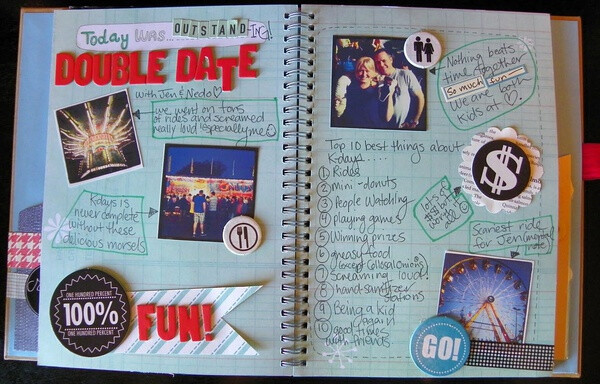 Today was..... OUTSTANDING!
DOUBLE DATE
with Jen & Nedo
we went on tons
of rides and screamed
really loud :) especially me
Kdays is
never complete
without these
delicious morsels
ONE HUNDRED PERCENT
100%
ONE HUNDRED PERCENT
FUN!
Nothing beats
time together
so much fun
We are both
kids at ♡.
Top 10 best things about
Kdays.....
① Rides
② mini-donuts
③ People Watching
④ playing games
⑤ Winning prizes
⑥ greasy food
(except Collosal Onions)
⑦ screaming loud!
⑧ hand sanitizer
stations
⑨ Being a kid
again
⑩ good times
with friends
$
lots of
$ but
worth it
all
Scariest ride
for Jen (mental
note)
GO!